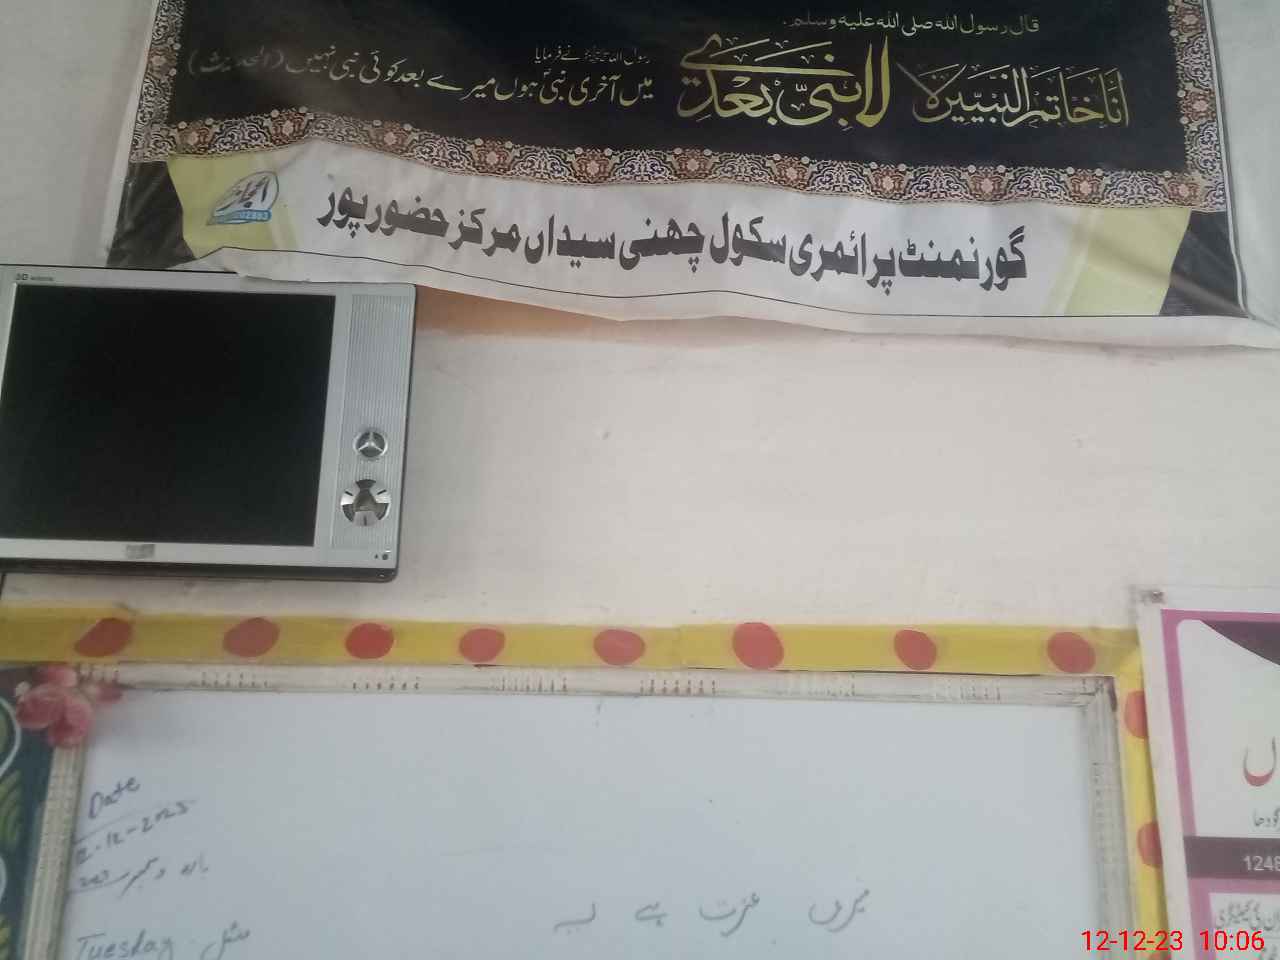 قال رسول الله صلى الله عليه وسلم.
أنا خاتم النبيين لا نبي بعدي
رسول اللہ ﷺ نے فرمایا
میں آخری نبی ہوں میرے بعد کوئی نبی نہیں (الحدیث)
گورنمنٹ پرائمری سکول چھنی سیداں مرکز حضور پور
3D
Date
12-12-2023
بارہ دسمبر
Tuesday منگل
عزت ہے
1248
12-12-23 10:06